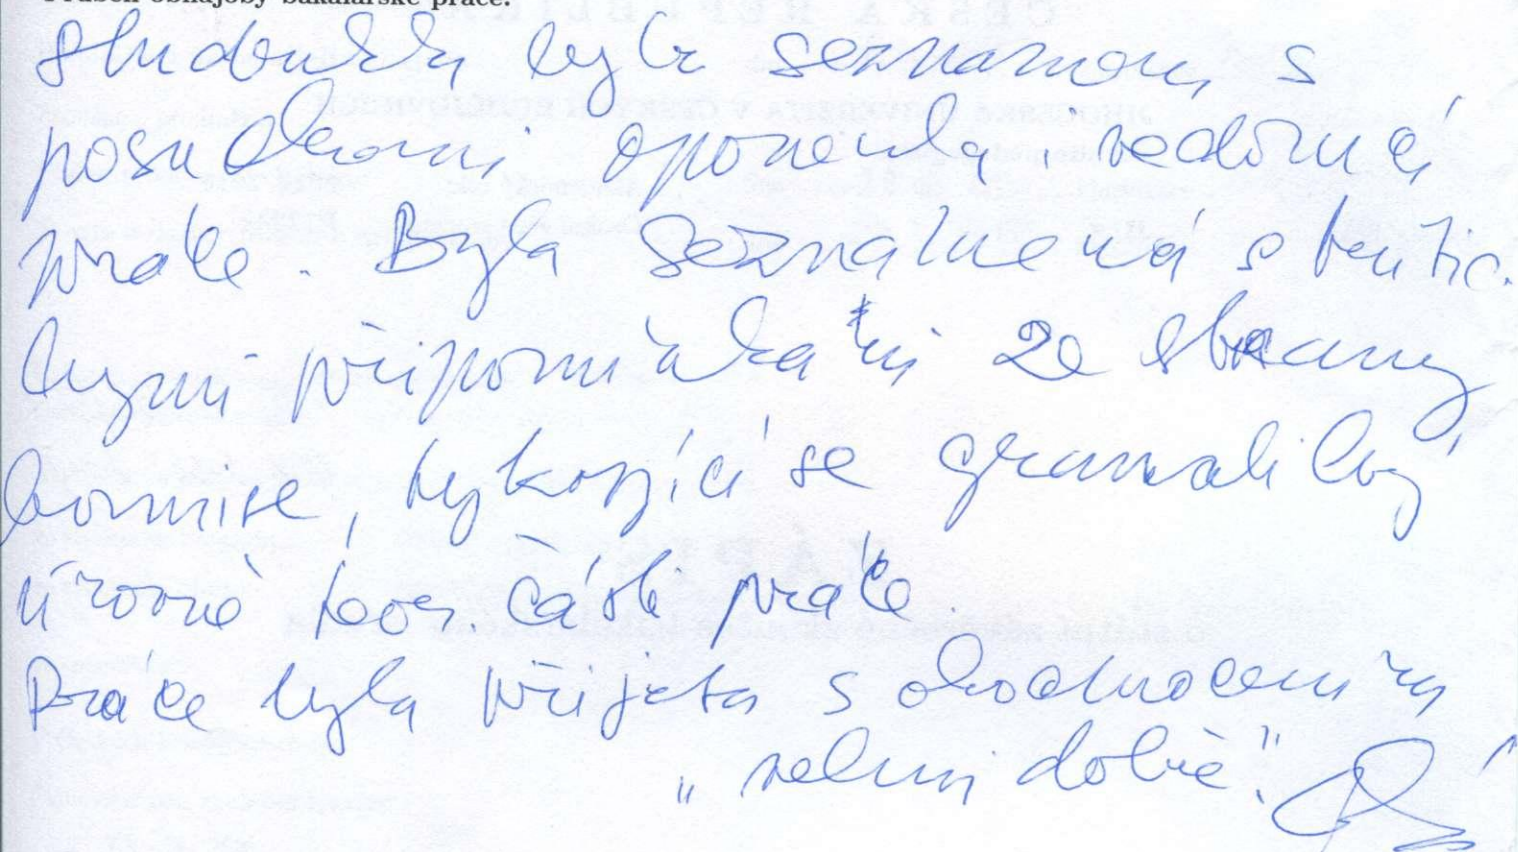 Průběh obhajoby bakalářské práce:
Studentka byla seznámena s
posudkami oponenta i vedoucí
práce. Byla seznámená s kritic-
kými připomínkami ze strany
komise, týkající se gramatiky
úrovně teor. části práce.
Práce byla přijata s ohodnocením
„velmi dobře".